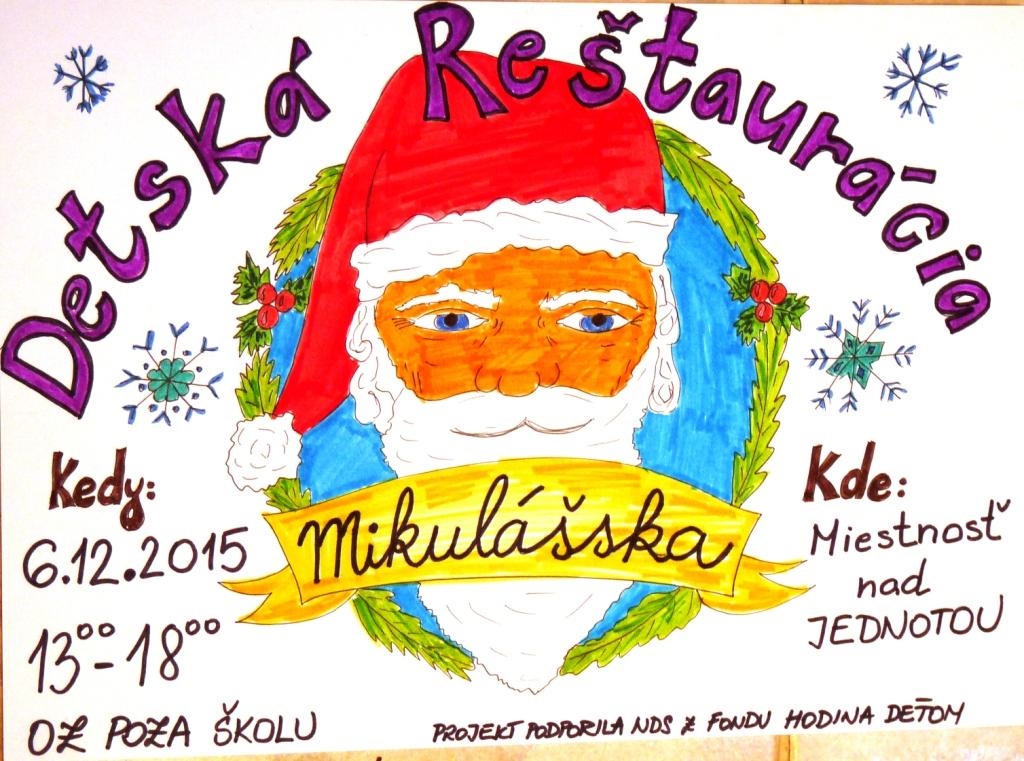 Detská Reštaurácia
Mikulášska
Kedy:
6.12.2015
13⁰⁰-18⁰⁰
OZ POZA ŠKOLU
Kde:
Miestnosť
nad
JEDNOTOU
PROJEKT PODPORILA NDS Z FONDU HODINA DEŤOM